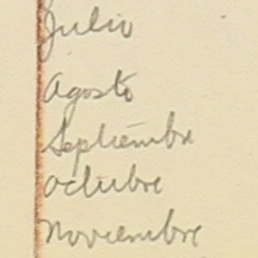 Julio
Agosto
Septiembre
Octubre
Noviembre